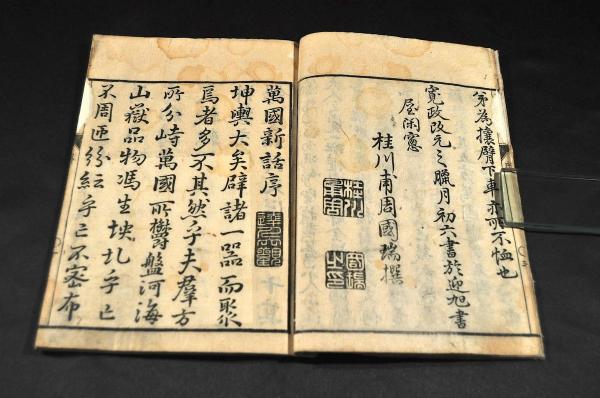 第為攘臂下車亦所不恤也
寛政改元之臘月初六書於迎旭書
屋閑窓
桂川甫周國瑞撰
桂川甫周
國瑞之印
萬國新話序
坤輿大矣辟諸一器而聚
焉者多不其然乎夫羣方
所分峙萬國所欝盤河海
山嶽品物馮生坱圠乎亡
不周匝紛紜乎亡不密布